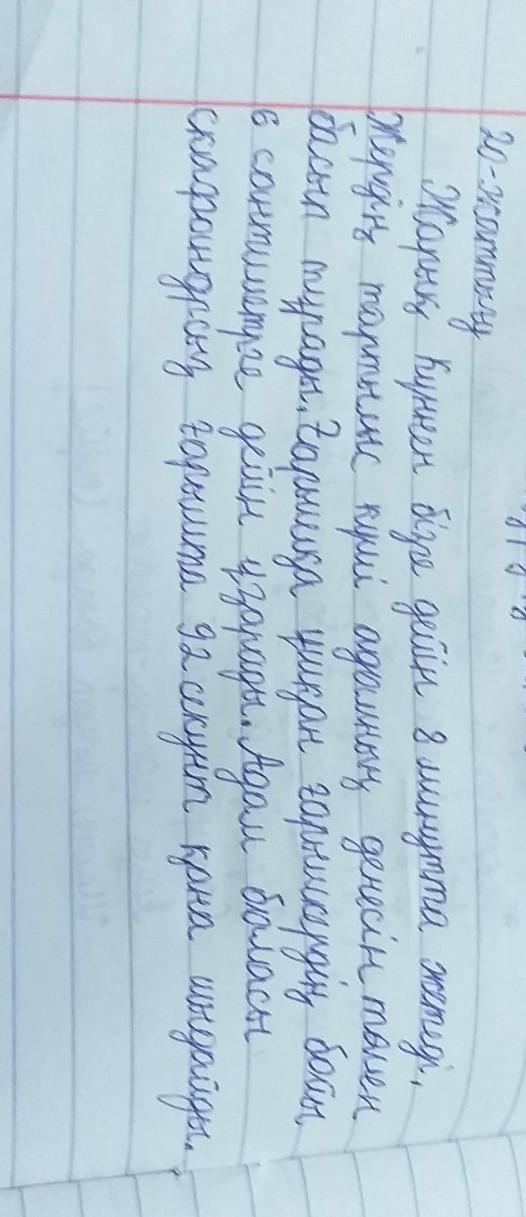 20-жаттығу
Жарық Күннен бізге дейін 8 минутта жетеді.
Жердің тартылыс күші адамның денесін төмен
басып тұрады. Ғарышқа ұшқан ғарышкердің бойы
6 сантиметрге дейін ұзарады. Адам баласы
скафандрсыз ғарышта 92 секунт қана шыдайды.